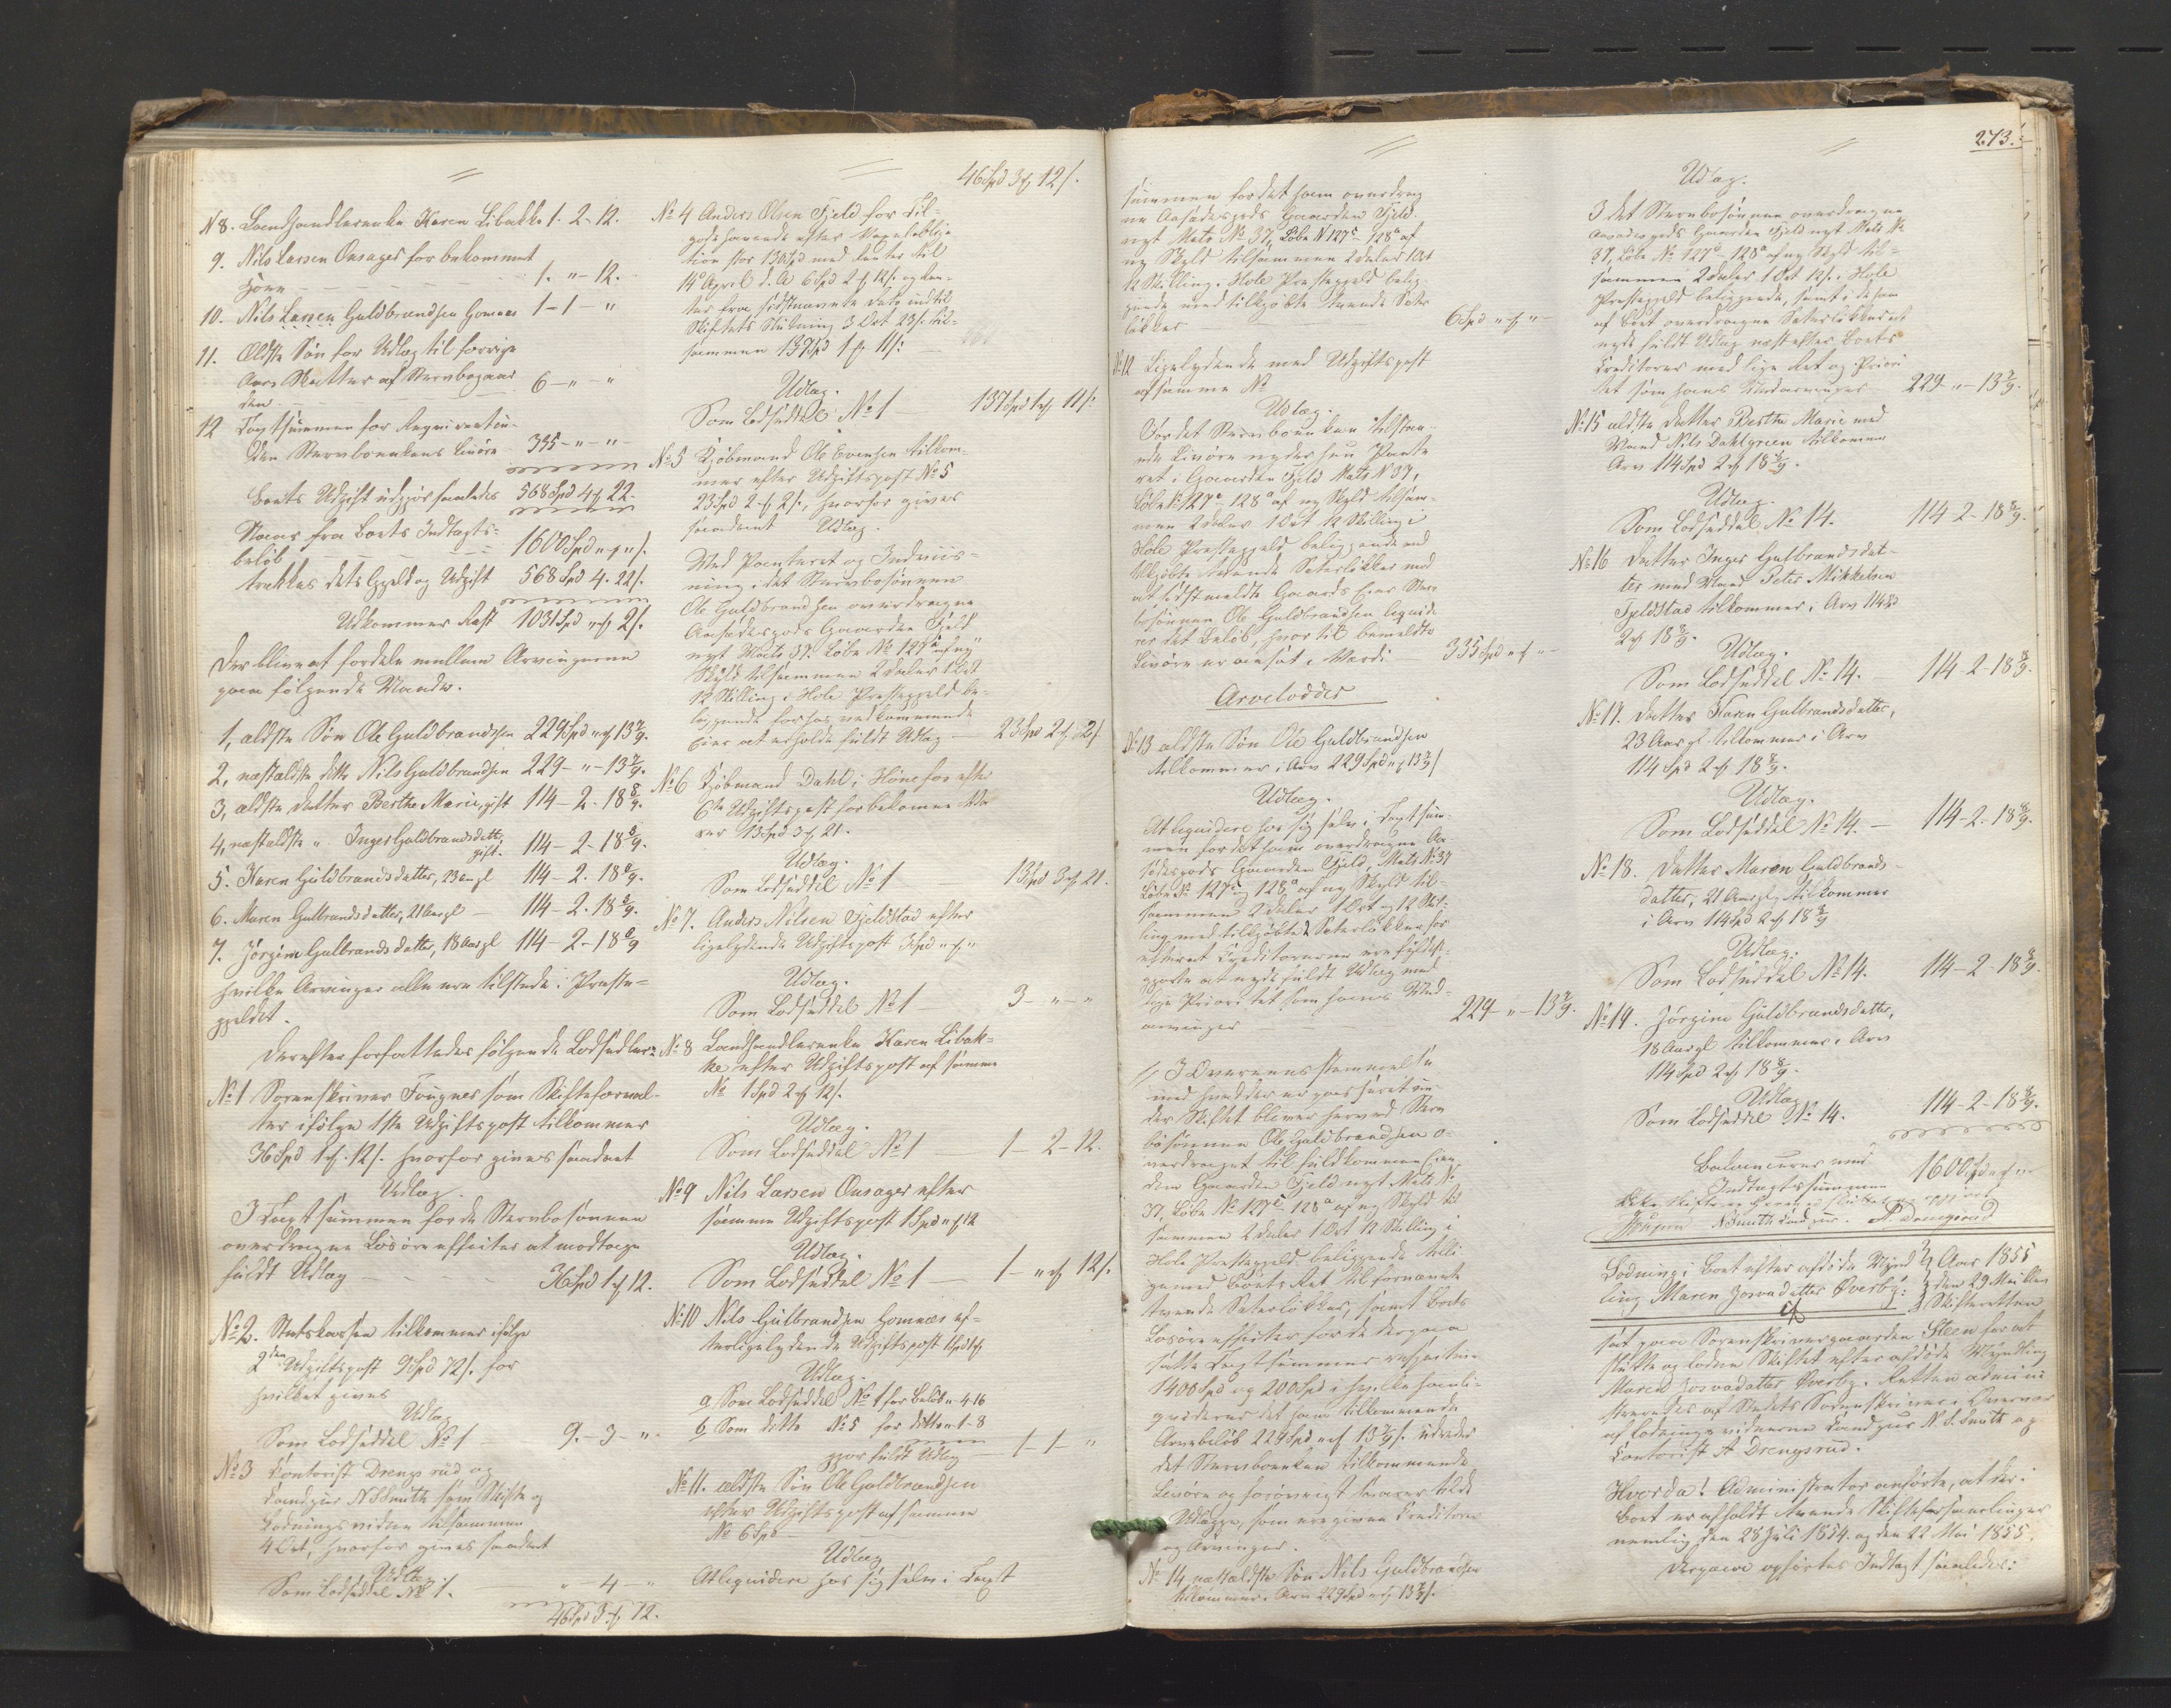 N 8. Landhandlerenke Karen Libakke 1-2-12.
9. Nils Larsen Onsager for bekommet
Høre 1. "-12.
10. Nils Larsen Guldbrandsen Gomnæs 1-1-"
11. Ældste Søn for Udlæg til forrige
Aars Skatter af Stervbogaar
den 6-"-"
12 Tagtsummen for
den Stervboenkens Livøre 335-"-"-
Boets Udgift udgjør saaledes 568 Spd 4 # 22.
Naar fra Boets Indtægts-
beløb 1600 Spd " # " /.
trækkes dets Gjæld og Udgift 568 Spd 4. 22 /.
Udkommer Rest 1031 Spd " # 2 /.
Der bliver at fordele mellem Arvingerne
paa følgende Maade.
1, ældste Søn Ole Guldbrandsen 229 Spd " # 13 7/9.
2, næstældste ditto Nils Guldbrandsen 229-"-13 7/9.
3, ældste Datter Berthe Marie, gift 114-2-18 8/9.
4, næstældste " Inger Guldbrandsdatt,
gift. 114-2-18 8/9.
5. Karen Guldbrandsdatter, 23 Aar gl 114-2-18 8/9.
6. Maren Gulbrandsdatter, 21 Aar gl - 114-2-18 8/9.
7. Jørgine Gulbrandsdatter, 18 Aar gl 114-2-18 8/9
hvilke Arvinger alle ere tilstede i Præste-
gjeldet.
Derefter forfattedes følgende Lodsedler:
No 1 Sorenskriver Fougner som Skifteforval-
ter ifølge 1ste Udgiftspost tilkommer
36 Spd 1 # 12 /. hvorfor gives saadant
Udlæg.
I Tagtsummen for de Stervbosønnen
overdragne Løsøreeffecter at modtage
fuldt Udlæg 36 Spd 1 # 12.
No 2. Statskassen tilkommer ifølge
2den Udgiftspost 9 Spd 72 /. for
hvilket gives
Udlæg
Som Lodseddel No 1 9.-3-".
No 3 Contorist Drengsrud og
Landgur N S Smith som Skifte og
Lodningsvidner tilsammen
4 Ort, hvorfor gives saadant
Udlæg
Som Lodseddel No 1. "-4-"
46 Spd 3 # 12.
46 Spd 3 # 12 /.
No 4 Anders Olsen Fjeld for Til-
godehavende efter Pante obliga
tion stor 130 Spd med Renter til
14de April d. A 6 Spd 2 # 12 /. og Ren-
ter fra sidstnævnte Dato indtil
Skiftets Slutning 3 Ort 23 /. til-
sammen 137 Spd 1 # 11 /:
Udlæg.
Som Lodseddel No 1 - 137 Spd 1 # 11 /:
No 5 Kjøbmand Ole Evensen tilkom-
mer efter Udgiftspost No 5
23 Spd 2 # 2 /., hvorfor gives
saadant Udlæg.
Med Panteret og Indviis-
ning i det Stervbosønnen
Ole Guldbrandsen overdragne
Aasædesgods Gaarden Fjeld
nyt Matr 37. Løbe No 127 af ny
Skyld tilsammen 2 Daler 1 Ort
12 Skilling i Hole Præstegjeld be-
liggende for hos vedkommende
Eier at erholde fuldt Udlæg - 23 Spd 2 # 2 /
No 6 Kjøbmand Dahl i Hønefos efter
6te Udgiftspost for bekomne Va
rer 13 Spd 3 # 21.
Udlæg.
Som Lodseddel No 1 - 13 Spd 3 # 21.
No 7. Anders Nilsen Fjeldstad efter
ligelydende Udgiftspost 3 Spd " # "
Udlæg.
Som Lodseddel No 1 - 3-"-"
No 8 Landhandlerenke Karen Libak-
ke efter Udgiftspost af samme
No 1 Spd 2 # 12 /.
Udlæg.
Som Lodseddel No 1 - 1-2-12.
No 9 Nils Larsen Onsager efter
samme Udgiftspost 1 Spd " # 12
Udlæg.
Som Lodseddel No 1 - 1-" # 12 /.
No 10 Nils Gulbrandsen Gomnæs ef-
ter ligelydende Udgiftspost 1 Spd 1 #
Udlæg.
a Som Lodseddel No 1 for Beløb "-4-16
b Som ditto No 5 for ditto "-1-8
gjør fuldt Udlæg 1-1-"
No 11. ældste Søn Ole Guldbrandsen
efter Udgiftspost af samme
No 6 Spd
Udlæg
At liquidere hos sig selv i Tagst
273.
summen for det ham overdrag
ne Aasædesgods Gaarden Fjeld.
nyt Matr No 37, Løbe N 127c - 128a af
ny Skyld tilsammen 2 Daler 1 Ort
12 Skilling i Hole Præstegjeld belig-
gende med tilkjøbte tvende Sæter
løkker 6 Spd " # "-
No 12 Ligelydende med Udgiftspost
af samme No
Udlæg.
For det Stervboenken tilstaa-
ede Livøre nyder hun Pante
ret i Gaarden Fjeld Matr N 37,
Løbe No 127c - 128a af ny Skyld tilsam-
men 2 Daler 1 Ort 12 Skilling i
Hole Præstegjeld beliggende med
tilkjøbte tvende Sæterløkker mod
at sidstmeldte Gaards Eier Sterv
bosønnen Ole Guldbrandsen liquide
rer det Beløb, hvortil bemeldte
Livøre er ansat i Værdi 335 Spd " # "-
Arvelodder
No 13 ældste Søn Ole Guldbrandsen
tilkommer i Arv 229 Spd " # 13 7/9 /
Udlæg.
At liquidere hos sig selv i Tagtsum-
men for det ham overdragne Aa-
sædesgods Gaarden Fjeld, Matr No 37
Løbe No 127c og 128a af ny Skyld til-
sammen 2 Daler 1 Ort og 12 Skil-
ling med tilkjøbte 2 Sæterløkker for
efterat Creditorerne ere fyldest-
gjorte at nyde fuldt Udlæg med
lige Prioritet som hans Med-
arvinger 229-"-13 7/9.
// I Overeensstemmelse
med hvad der er passeret un-
der Skiftet bliver herved Sterv
bosønnen Ole Guldbrandsen o-
verdraget til fuldkommen Eien
dom Gaarden Fjeld nyt Matr No
37, Løbe No 127c - 128a af ny Skyld til
sammen 2 Daler 1 Ort 12 Skilling i
Hole Præstegjeld beliggende tilli
gemed Boets Ret til fornævnte
tvende Sæterløkker, samt Boets
Løsøreeffecter for de derpaa
satte Tagtsummer respective
1400 Spd og 200 Spd i hvilke han li-
quiderer det ham tilkommende
Arvebeløb 229 Spd " # 13 7/9 /. udreder
det Stervboenken tilkommende
Livøre og forøvrigt svarer til de
Udlægge, som ere givne Creditorer
og Arvinger.
No 14 næstældste Søn Nils Guldbrandsen
tilkommer i Arv 229 Spd " # 13 7/9 /.
Udlæg.
I det Stervbosønnen overdragne
Aasædesgods Gaarden Fjeld nyt Matr No
37, Løbe No 127c - 128a af ny Skyld til-
sammen 2 Daler 1 Ort 12 /. i Hole
Præstegjeld beliggende, samt i de ham
af Boet overdragne Sæterløkker at
nyde fuldt Udlæg næst efter Boets
Creditorer med lige Ret og Priori
tet som hans Medarvinger 229-"-13 7/9.
No 15 ældste Datter Berthe Marie med
Mand Nils Dahlgreen tilkommer
Arv 114 Spd 2 # 18 8/9.
Udlæg.
Som Lodseddel No 14. 114-2-18 8/9.
No 16 Datter Inger Gulbrandsdat-
ter med Mand Peter Mikkelsen
Fjeldstad tilkommer i Arv 114 Spd
2 # 18 8/9.
Udlæg.
Som Lodseddel No 14. - 114-2-18 8/9.
No 17. Datter Karen Gulbrandsdatter,
23 Aar gl. tilkommer i Arv
114 Spd 2 # 18 8/9.
Udlæg.
Som Lodseddel No 14. - 114-2-18 8/9.
No 18. Datter Maren Guldbrands-
datter, 21 Aar gl. tilkommer
i Arv 114 Spd 2 # 18 8/9
Udlæg.
Som Lodseddel No 14. 114-2-18 8/9.
No 19. Jørgine Guldbrandsdatter,
18 Aar gl tilkommer i Arv
114 Spd 2 # 18 8/9.
Udlæg
Som Lodseddel No 14. 114-2-18 8/9.
Balancerer med
Indtægtssummen 1600 Spd " # "-
Fougner N Smith Landgur. A. Drengsrud
Lodning i Boet efter afdøde Mynd
ling Maren Josvadatter Øverby:
Aar 1855
den 29 Mai blev
Skifteretten
sat paa Sorenskrivergaarden Steen for at
slutte og lodne Skiftet efter afdøde Myndling
Maren Josvadatter Øverby. Retten admini
streredes af Stedets Sorenskriver i Overvær
af Lodningsvidnerne Landgur N. S. Smith og
Contorist A Drengsrud.
Hvorda! Administrator anførte, at der i
Boet er afholdt tvende Skiftesamlinger
nemlig den 28 Juli 1854. og den 22 Mai 1855.
Derpaa opførtes Indtægt saaledes: